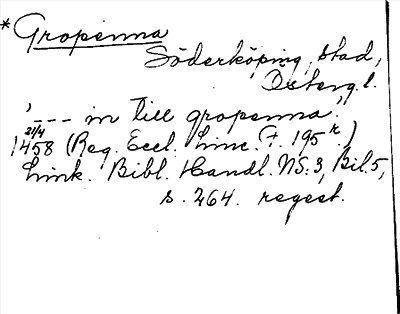 *Gropenna
Söderköping, stad,
Österg.l.
'--- in till gropenna'
21/4
1458 (Reg. Eccl. Linc. F. 195 r.)
Link. Bibl. Handl. NS. 3, Bil. 5,
s. 264. regest.